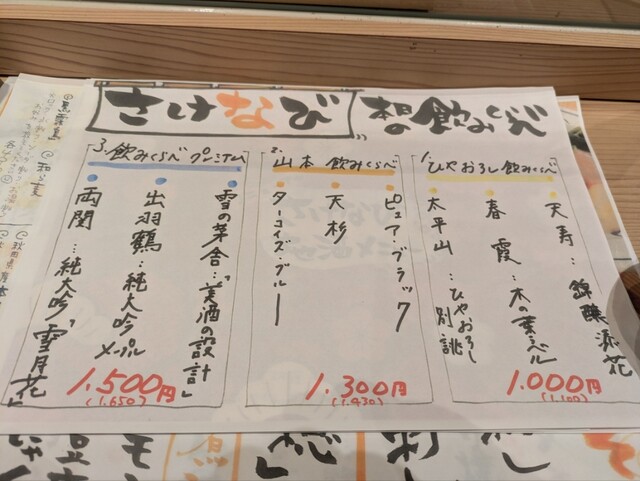 さけなび
本日の飲みくらべ
1. ひやおろし飲みくらべ
天寿:錦醸添花
春霞:木の葉ラベル
太平山:ひやおろし別誂
1.000円
(1.100)
2. 山本 飲みくらべ
ピュア・ブラック
天杉
ターコイズ・ブルー
1.300円
(1.430)
3. 飲みくらべプレミアム
雪の茅舎:「美酒の設計」
出羽鶴:純大吟メイプル
両関:純大吟「雪月花」
1.500円
(1.650)